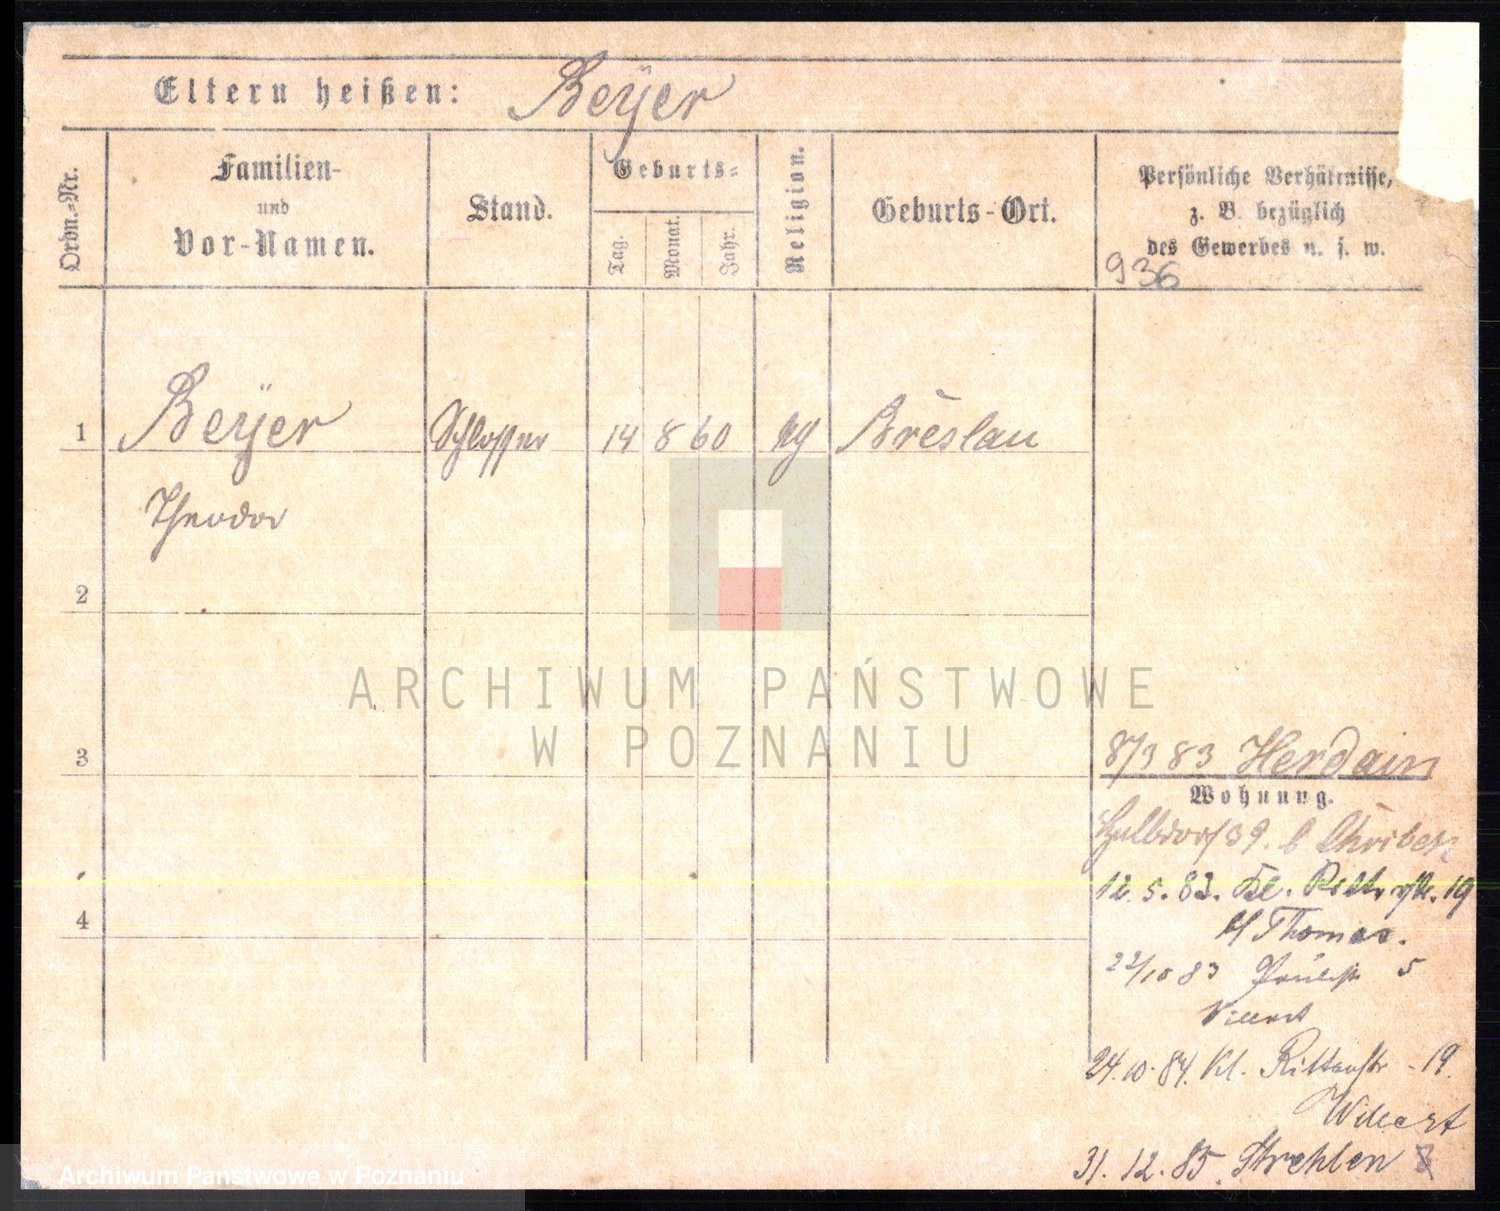 Eltern heißen: Beyer
Ordn.-Nr.
Familien-
und
Vor-Namen.
Stand.
Geburts-
Tag.
Monat.
Jahr.
Religion.
Geburts-Ort.
Persönliche Verhältnisse,
z. B. bezüglich
des Gewerbes u. s. w.
936
1 Beyer Schlosser 14 8 60 Breslau
Theodor
2
ARCHIWUM PAŃSTWOWE
W POZNANIU
3
8/3 83 Herdain
Wohnung.
Halbdorf 39. b
12. 5. 83. Kl. Ritterstr. 19
Thomas.
4
22/10 83 5
24. 10. 84. Kl. Ritterstr - 19.
Willert
31. 12. 85. Strehlen
Archiwum Państwowe w Poznaniu